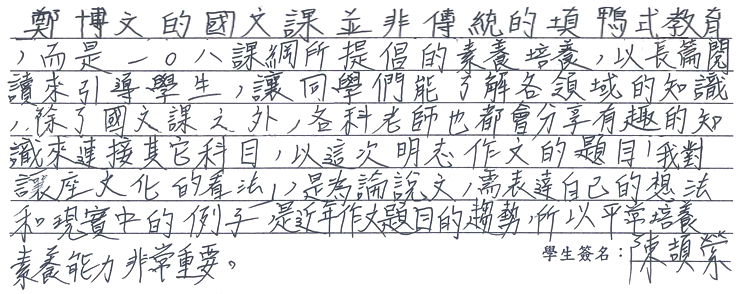 鄭博文的國文課並非傳統的填鴨式教育
，而是一０八課綱所提倡的素養培養，以長篇閱
讀來引導學生，讓同學們能了解各領域的知識
，除了國文課之外，各科老師也都會分享有趣的知
識來連接其它科目，以這次明志作文的題目「我對
讓座文化的看法」，是為論說文，需表達自己的想法
和現實中的例子，是近年作文題目的趨勢，所以平常培養
素養能力非常重要。
學生簽名：陳頡縈